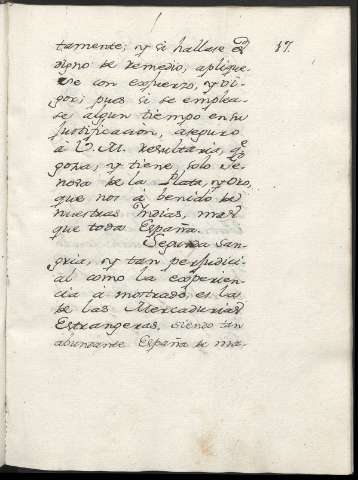 17.
tamente; y si hallase
digno de remedio, aplique-
se con esfuerzo, y vi-
gor; pues si se emplea-
se algun tiempo en su
justificacion, aseguro
á V. M. resultaria, qe
goza, y tiene solo Ge-
nova de la Plata, y Oro,
que nos á benido de
nuestras Indias, mas
que toda España.
Segunda San-
gria, y tan perjudici-
al como la experien-
cia á mostrado, es la
de las Mercadurias
Estrangeras, siendo tan
abundante España de ma-